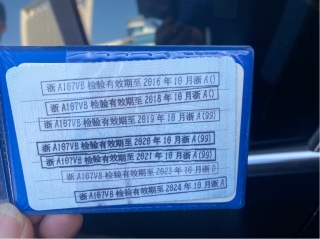 浙A107VB 检验有效期至2016年10月浙A()
浙A107VB 检验有效期至2018年10月浙A()
浙A107VB 检验有效期至2019年10月浙A(99)
浙A107VB 检验有效期至2020年10月浙A(99)
浙A107VB 检验有效期至2021年10月浙A(99)
浙A107VB 检验有效期至2023年10月浙
浙A107VB 检验有效期至2024年10月浙A